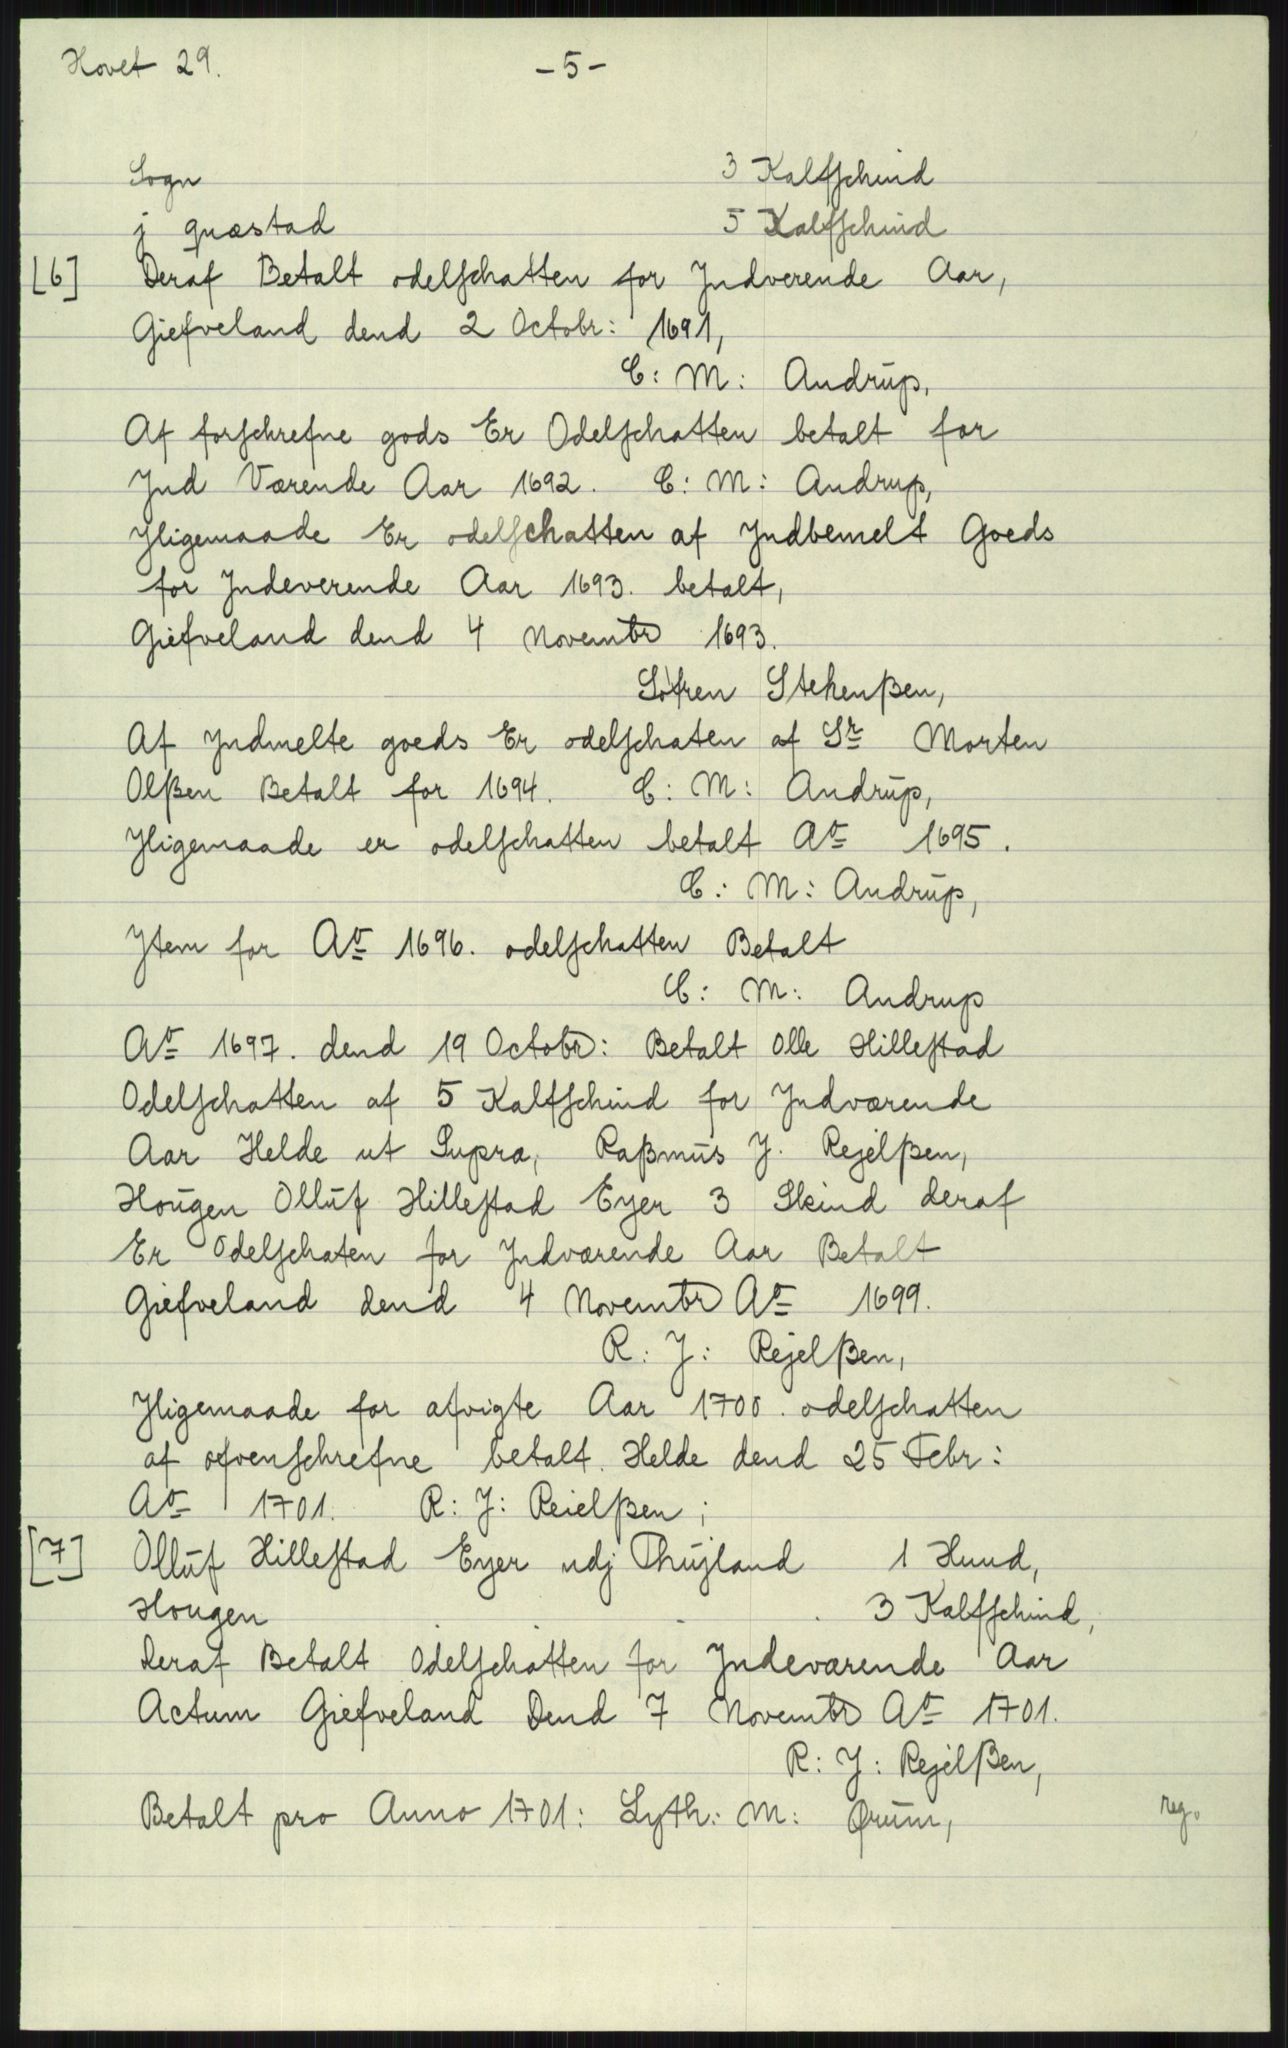 Hovet 29.
- 5 -
Sogn 3 Kalfschind
j quæstad 5 Kalfschind
[6] Deraf Betalt odelschatten for Jndverende Aar,
Giefveland dend 2 Octobr: 1691,
C: M: Andrup,
Af forschrefne gods Er Odelschatten betalt for
Jnd Værende Aar 1692. C: M: Andrup,
Jligemaade Er odelschatten af Jndbemelt Goeds
for Jndeverende Aar 1693. betalt,
Giefveland dend 4 Novembr 1693.
Söfren Stehenßen,
Af Jndmelte goeds Er odelschaten af Sr Morten
Olßen Betalt for 1694. C: M: Andrup,
Jligemaade er odelschatten betalt Ao 1695.
C: M: Andrup,
Jtem for Ao 1696. odelschatten Betalt
C: M: Andrup
Ao 1697. dend 19 Octobr: Betalt Olle Hillestad
Odelschatten af 5 Kalfschind for Jndværende
Aar Helde ut Supra, Raßmus J. Rejelßen,
Hougen Olluf Hillestad Eyer 3 Skind deraf
Er Odelschaten for Jndværende Aar Betalt
Giefveland dend 4 Novembr Ao 1699.
R: J: Rejelßen,
Jligemaade for afvigte Aar 1700. odelschatten
af ofvenschrefne betalt. Helde dend 25 Febr:
Ao 1701. R: J: Reielßen;
[7] Olluf Hillestad Eyer udj Thujland 1 Huud,
Hougen 3 Kalfschind,
Deraf Betalt Odelschatten for Jndeværende Aar
Actum Giefveland Dend 7 Novembr Ao 1701.
R: J: Rejelßen,
Betalt pro Anno 1701: Lyth: M: Ørum,
reg.